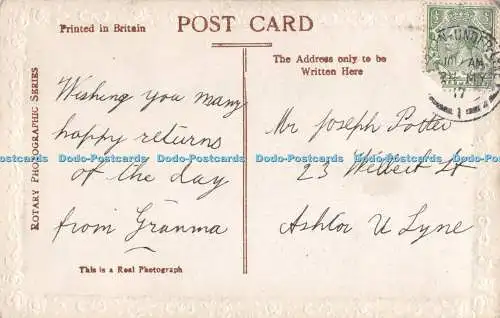 Printed in Britain
POST CARD
The Address only to be
Written Here
ROTARY PHOTOGRAPHIC SERIES
Wishing you many
happy returns
of the day
from Granma
Mr Joseph Potter
23 Welbeck St
Ashton U Lyne
This is a Real Photograph
10 AM
MY
17
1
Dodo-Postcards Dodo-Postcards Dodo-Postcards Dodo-Postcards Dodo-Postcards